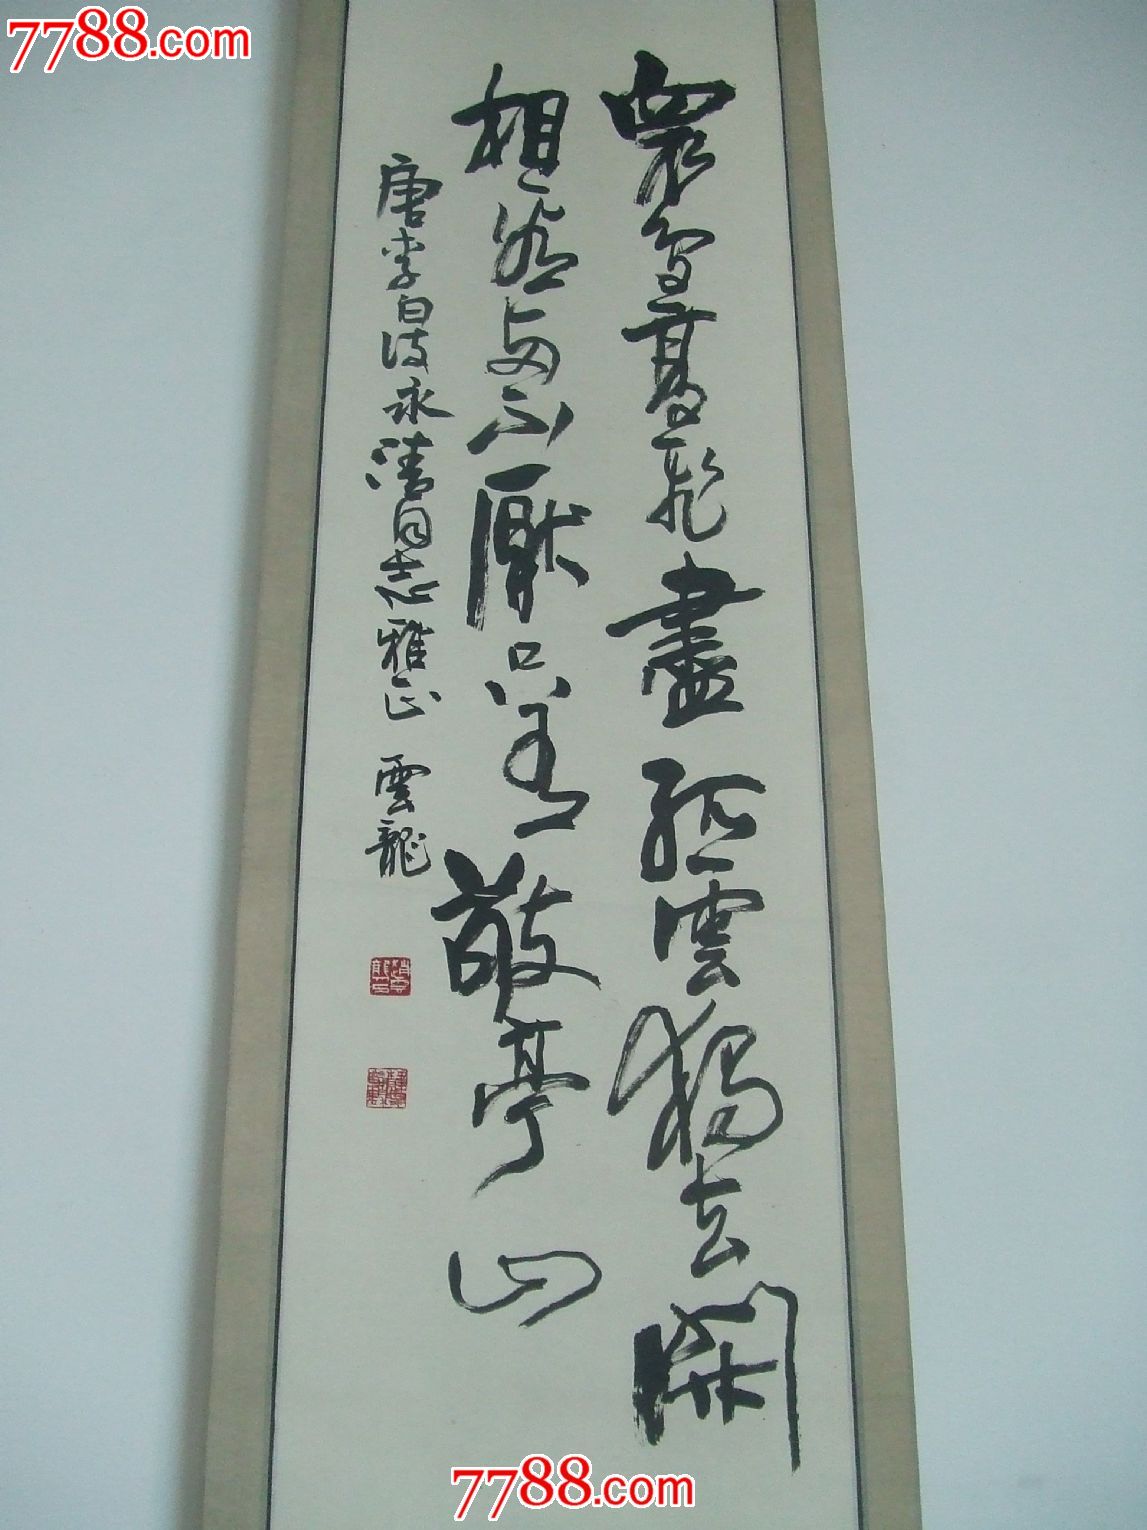 7788.com
眾鳥高飛盡孤雲獨去閑
相看兩不厭只有敬亭山
唐李白詩永清同志雅正 雲龍
7788.com